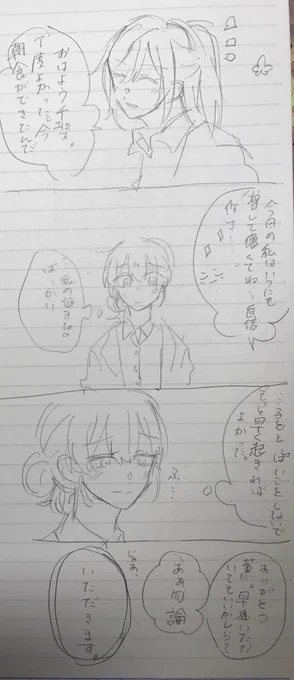 おはよう千聖。
丁度よかった。今
朝食ができたんだ
今日の私はいつにも
増して儚くてね、自信
作さ…
…私の好きなもの
ばっかり
もっと早く起きれば
よかった。
ふ…
ありがとう、
薫。早速いただ
いてもいいかしら?
ああ勿論
じゃあ、
いただきます。